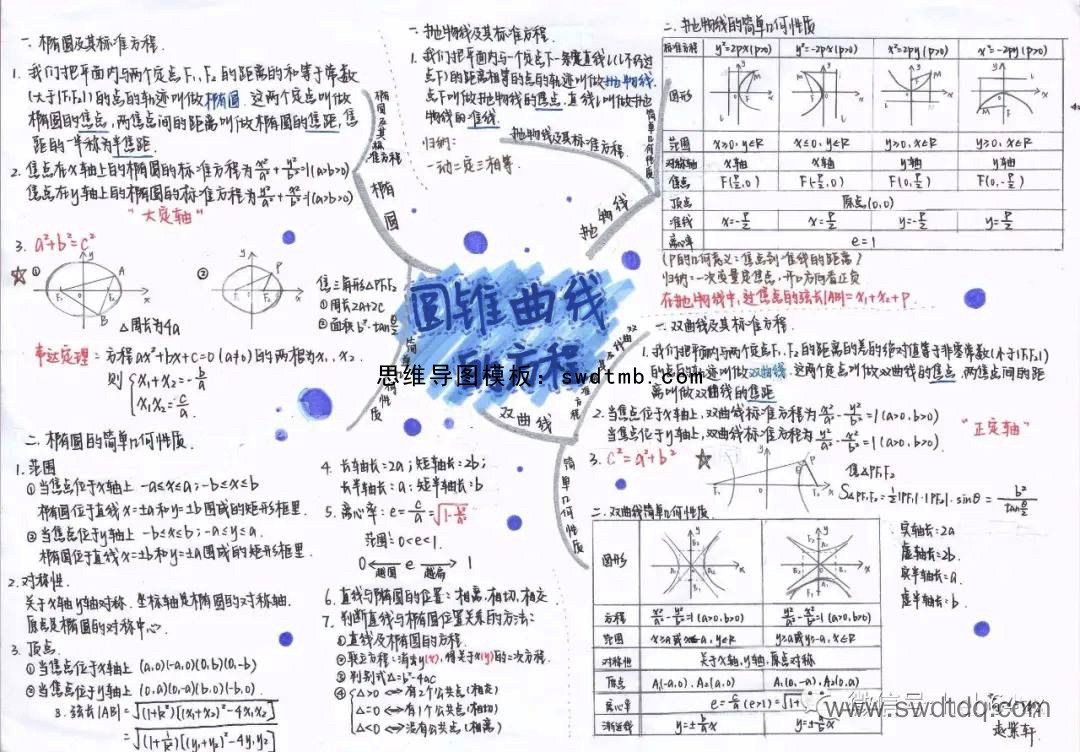 一. 椭圆及其标准方程.
1. 我们把平面内与两个定点F₁,F₂的距离的和等于常数
(大于|F₁F₂|)的点的轨迹叫做椭圆.这两个定点叫做
椭圆的焦点,两焦点间的距离叫做椭圆的焦距,焦
距的一半称为半焦距.
2. 焦点在x轴上的椭圆的标准方程为x²/a²+y²/b²=1(a>b>0)
焦点在y轴上的椭圆的标准方程为
"大定轴"
3. a²+b²=c²
①
②
F₁
A
B
P
F₁
F₂
x
△周长为4a
焦三角形△PF₁F₂
①周长2a+2c
②面积b²·tanθ/2
韦达定理: 方程ax²+bx+c=0(a≠0)的两根为x₁,x₂.
则 x₁+x₂=-b/a
x₁x₂=c/a
二. 椭圆的简单几何性质.
1. 范围
①当焦点位于x轴上 -a≤x≤a;-b≤x≤b
椭圆位于直线x=±a和y=±b围成的矩形框里.
②当焦点位于y轴上 -b≤x≤b;-a≤y≤a.
椭圆位于直线x=±b和y=±a围成的矩形框里.
2. 对称性.
关于x轴y轴对称.坐标轴是椭圆的对称轴.
原点是椭圆的对称中心
3. 顶点.
①当焦点位于x轴上 (a,0)(-a,0)(0,b)(0,-b)
②当焦点位于y轴上 (0,a)(0,-a)(b,0)(-b,0).
8. 弦长|AB|=√(1+k²)[(x₁+x₂)²-4x₁x₂]
=√(1+1/k²)[(y₁+y₂)²-4y₁y₂]
4. 长轴长=2a;短轴长=2b;
长半轴长:a;短半轴长:b
5. 离心率: e=c/a=√1-b²/a²
范围:0<e<1.
0 越圆 e 越扁 1
6. 直线与椭圆的位置:相离,相切,相交
7. 判断直线与椭圆位置关系的方法:
①直线及椭圆的方程.
②联立方程:消去y(x),得关于x(y)的二次方程.
③判别式△=b²-4ac
④△>0 ⟺ 有2个公共点(相交)
△=0 ⟺ 有1个公共点(相切)
△<0 ⟺ 没有公共点(相离)
圆锥曲线
与方程
思维导图模板:swdtmb.com
椭圆
椭圆及其标准方程
简单几何性质
抛物线
抛物线及其标准方程
简单几何性质
双曲线
双曲线及标准方程
简单几何性质
一. 抛物线及其标准方程.
1. 我们把平面内与一个定点F一条定直线l(l不经过
点F)的距离相等的点的轨迹叫做抛物线
点F叫做抛物线的焦点,直线l叫做抛
物线的准线
归纳:
一动二定三相等
二. 抛物线的简单几何性质
标准方程 y²=2px(p>0) y²=-2px(p>0) x²=2py(p>0) x²=-2py(p>0)
图形
范围 x≥0,y∈R x≤0,y∈R y≥0,x∈R y≤0,x∈R
对称轴 x轴 x轴 y轴 y轴
焦点 F(p/2,0) F(-p/2,0) F(0,p/2) F(0,-p/2)
顶点 原点(0,0)
准线 x=-p/2 x=p/2 y=-p/2 y=p/2
离心率 e=1
(P的几何意义:焦点到准线的距离)
归纳:一次变量是焦点,开口方向看正负
在抛物线中,过焦点的弦长|AB|=x₁+x₂+p.
一. 双曲线及其标准方程.
1. 我们把平面内与两个定点F₁,F₂的距离的差的绝对值等于非零常数(小于|F₁F₂|)
的点的轨迹叫做双曲线.这两个定点叫做双曲线的焦点,两焦点间的距
离叫做双曲线的焦距
2. 当焦点位于x轴上,双曲线标准方程为x²/a²-y²/b²=1(a>0,b>0)
当焦点位于y轴上,双曲线标准方程为y²/a²-x²/b²=1(a>0,b>0).
"正定轴"
3. c²=a²+b²
P
F₁
F₂
焦△PF₁F₂
S△PF₁F₂=½|PF₁|·|PF₂|·sinθ=b²/tanθ/2
二. 双曲线简单几何性质.
图形
方程 x²/a²-y²/b²=1(a>0,b>0) y²/a²-x²/b²=1(a>0,b>0)
范围 x≥a或x≤-a,y∈R y≥a或y≤-a,x∈R
对称性 关于x轴,y轴,原点对称
顶点 A₁(-a,0).A₂(a,0) A₁(0,-a).A₂(0,a)
离心率 e=c/a(e>1)=√1+
渐近线 y=±b/a x
实轴长:2a
虚轴长:2b.
实半轴长:a.
虚半轴长:b.
微信号:
www.swdtdq.com